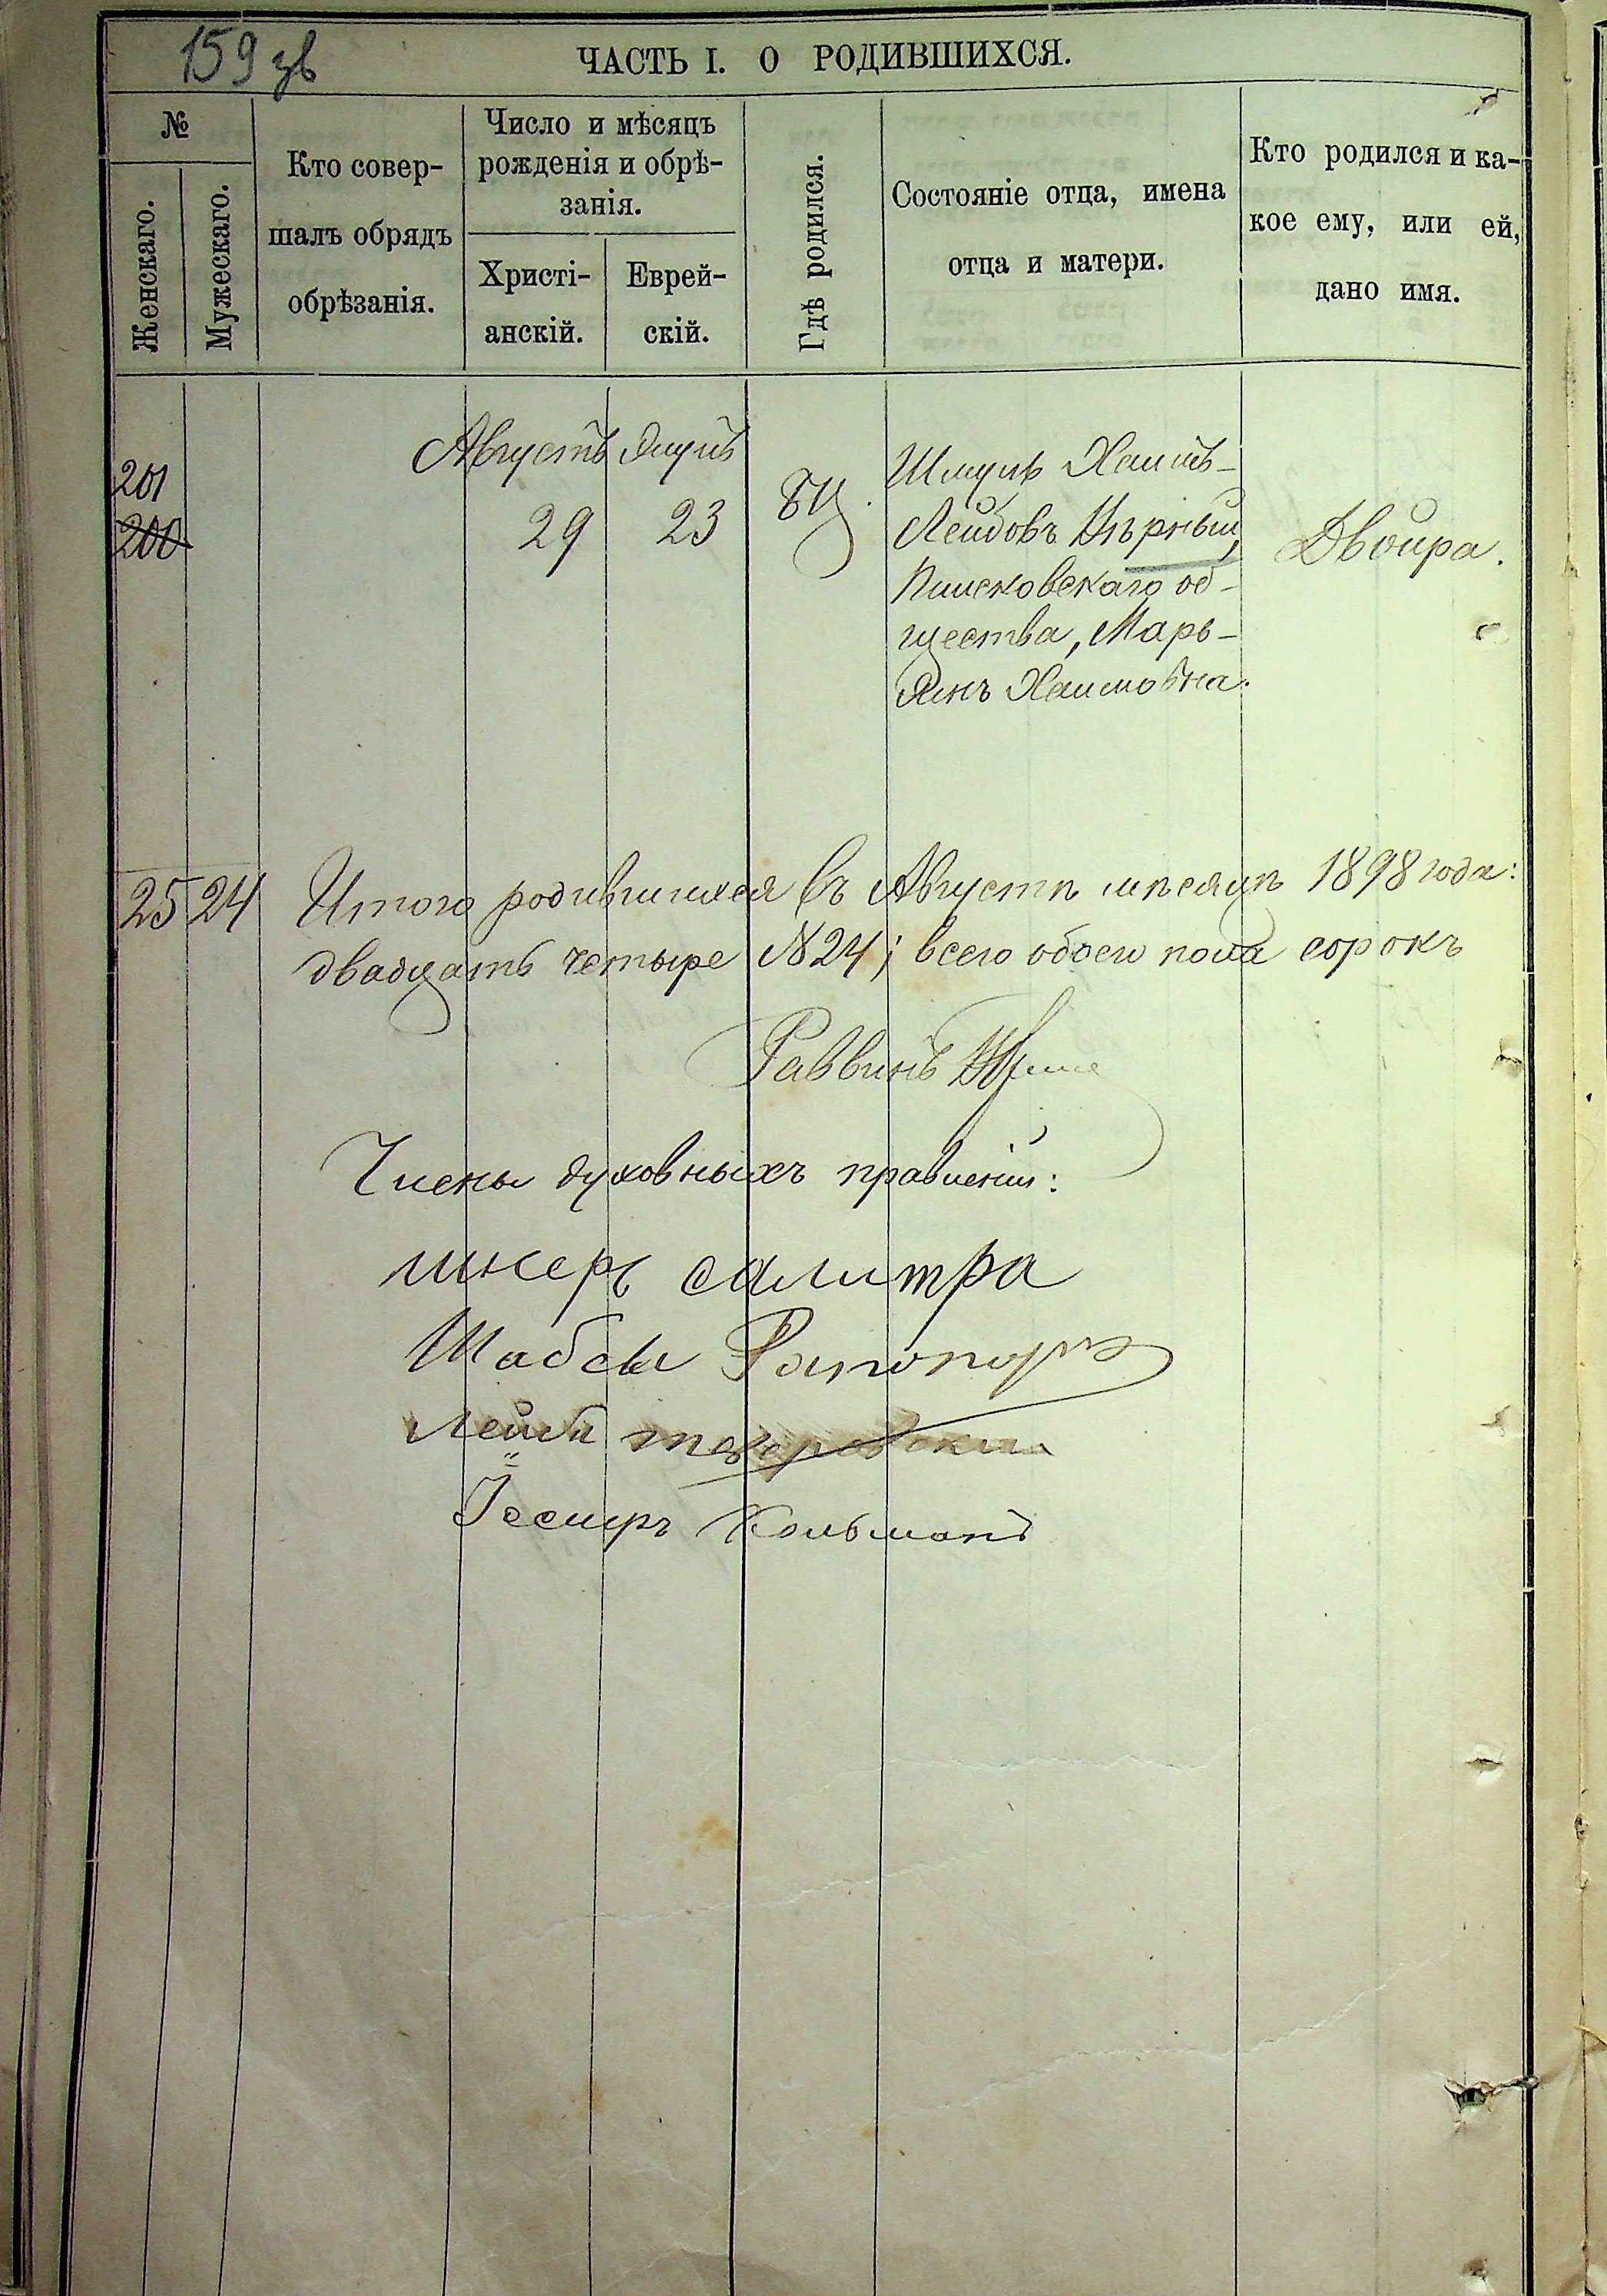 159 зв
ЧАСТЬ I. О РОДИВШИХСЯ.
№
Женскаго.
Мужескаго.
Кто совер-
шалъ обрядъ
обрѣзанія.
Число и мѣсяцъ
рожденія и обрѣ-
занія.
Христі-
анскій.
Еврей-
скій.
Гдѣ родился.
Состояніе отца, имена
отца и матери.
Кто родился и ка-
кое ему, или ей,
дано имя.
Августъ Элулъ
201
200
29 23
БЦ.
Шмуль Хаимъ-
Лейбовъ
общества, Марь-
Хаимовна.
Двойра.
25 24 Итого родившихся въ Августѣ мѣсяцѣ 1898 года:
двадцать четыре №24; всего обоего пола сорокъ
Раввинъ
Члены духовныхъ правленій:
салитра
Шабсы Рапопортъ
Лейб
Кольманъ